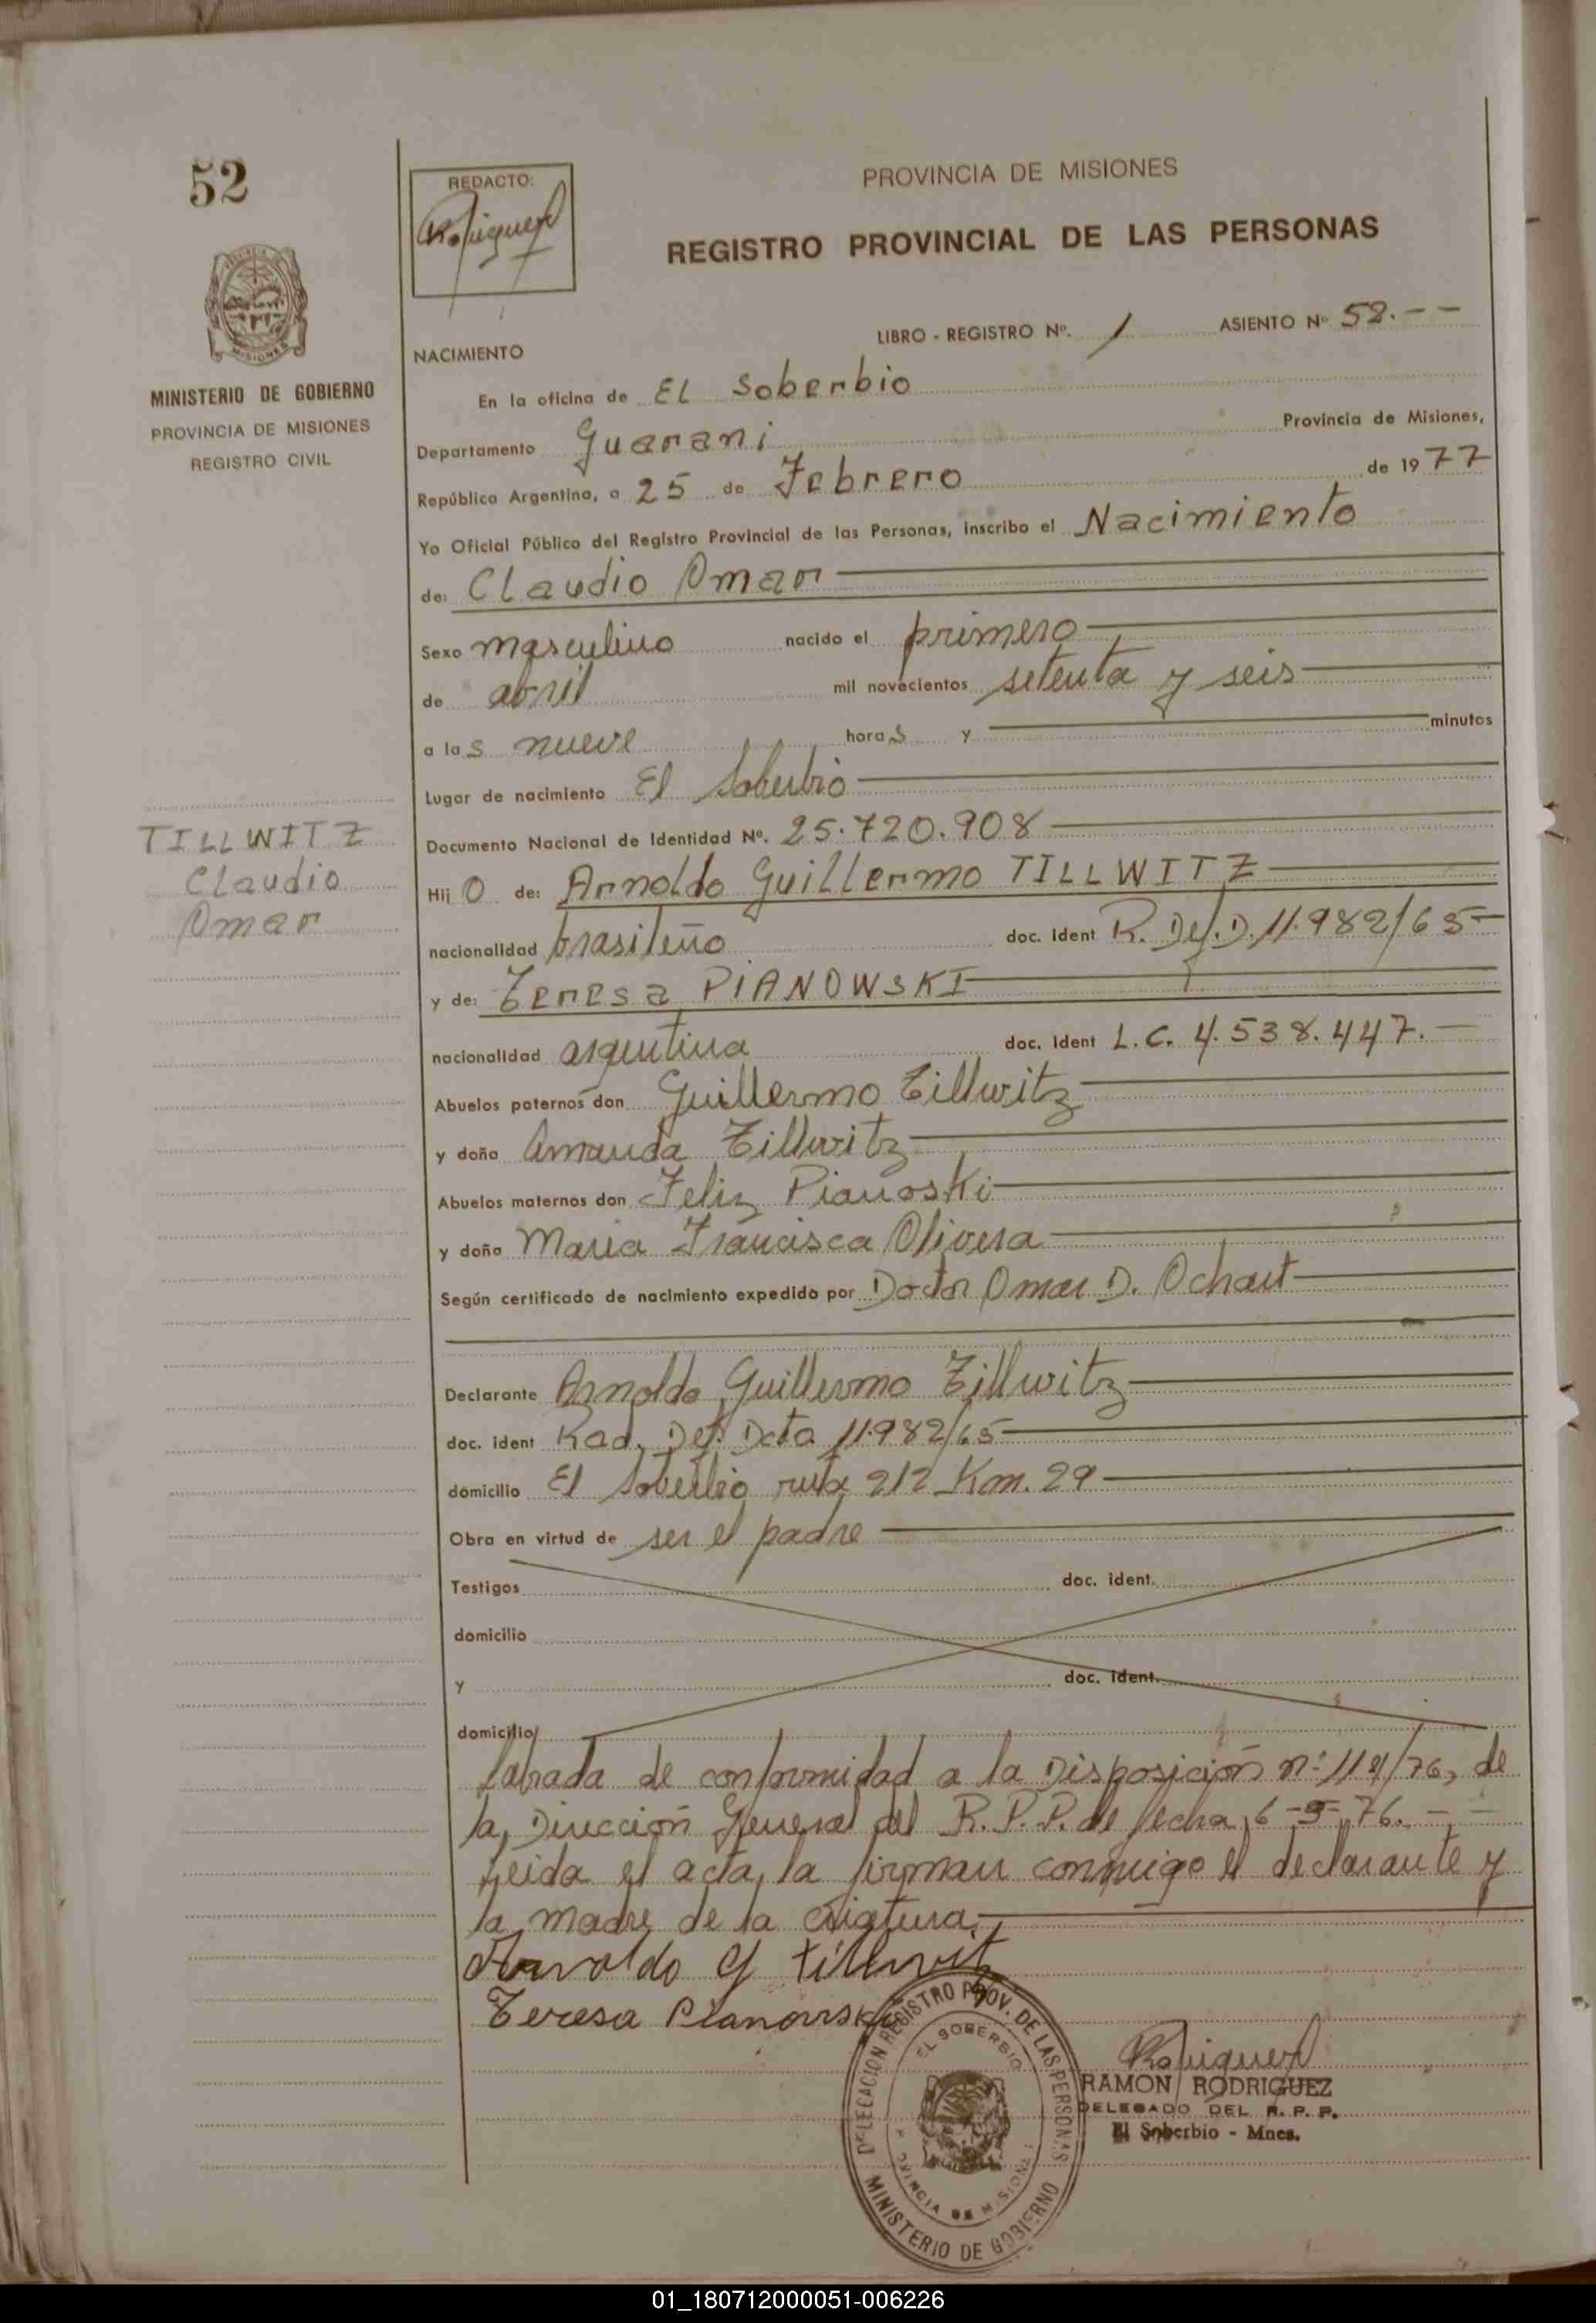 52
PROVINCIA DE MISIONES
REDACTO:
REGISTRO PROVINCIAL DE LAS PERSONAS
MISIONES
MINISTERIO DE GOBIERNO
PROVINCIA DE MISIONES
REGISTRO CIVIL
LIBRO - REGISTRO Nº. 1 ASIENTO Nº 52.--
NACIMIENTO
En la oficina de EL Soberbio
Departamento Guarani Provincia de Misiones,
República Argentina, a 25 de Febrero de 1977
Yo Oficial Público del Registro Provincial de las Personas, inscribo el Nacimiento
de: Claudio Omar
Sexo masculino nacido el primero
de abril mil novecientos setenta y seis
a las nueve horas y minutos
Lugar de nacimiento El Soberbio
TILLWITZ
Claudio
Omar
Documento Nacional de Identidad Nº. 25.720.908
Hijo de: Arnoldo Guillermo TILLWITZ
nacionalidad brasileño doc. ident R. Def. D. 11.982/65-
y de: Teresa PIANOWSKI
nacionalidad argentina doc. ident L.C. 4.538.447.-
Abuelos paternos don Guillermo Tillwitz
y doña Amanda Tillwitz
Abuelos maternos don Feliz Pianoski
y doña Maria Francisca Olivera
Según certificado de nacimiento expedido por Doctor Omar D. Ochart
Declarante Arnoldo Guillermo Tillwitz
doc. ident Rad. Def. Dcto 11.982/65
domicilio El Soberbio ruta 212 Km. 29
Obra en virtud de ser el padre
Testigos doc. ident.
domicilio
y doc. ident.
domicilio
labrada de conformidad a la Disposición nº /76, de
la Dirección General del R.P.P. de fecha 6-9-76.--
leida el acta, la firman conmigo el declarante y
la madre de la criatura.
Arnoldo G Tillwitz
Teresa Pianowski
DELEGACION REGISTRO PROV. DE LAS PERSONAS
EL SOBERBIO
PROVINCIA DE MISIONES
MINISTERIO DE GOBIERNO
RAMON RODRIGUEZ
DELEGADO DEL R. P. P.
El Soberbio - Mnes.
01_180712000051-006226